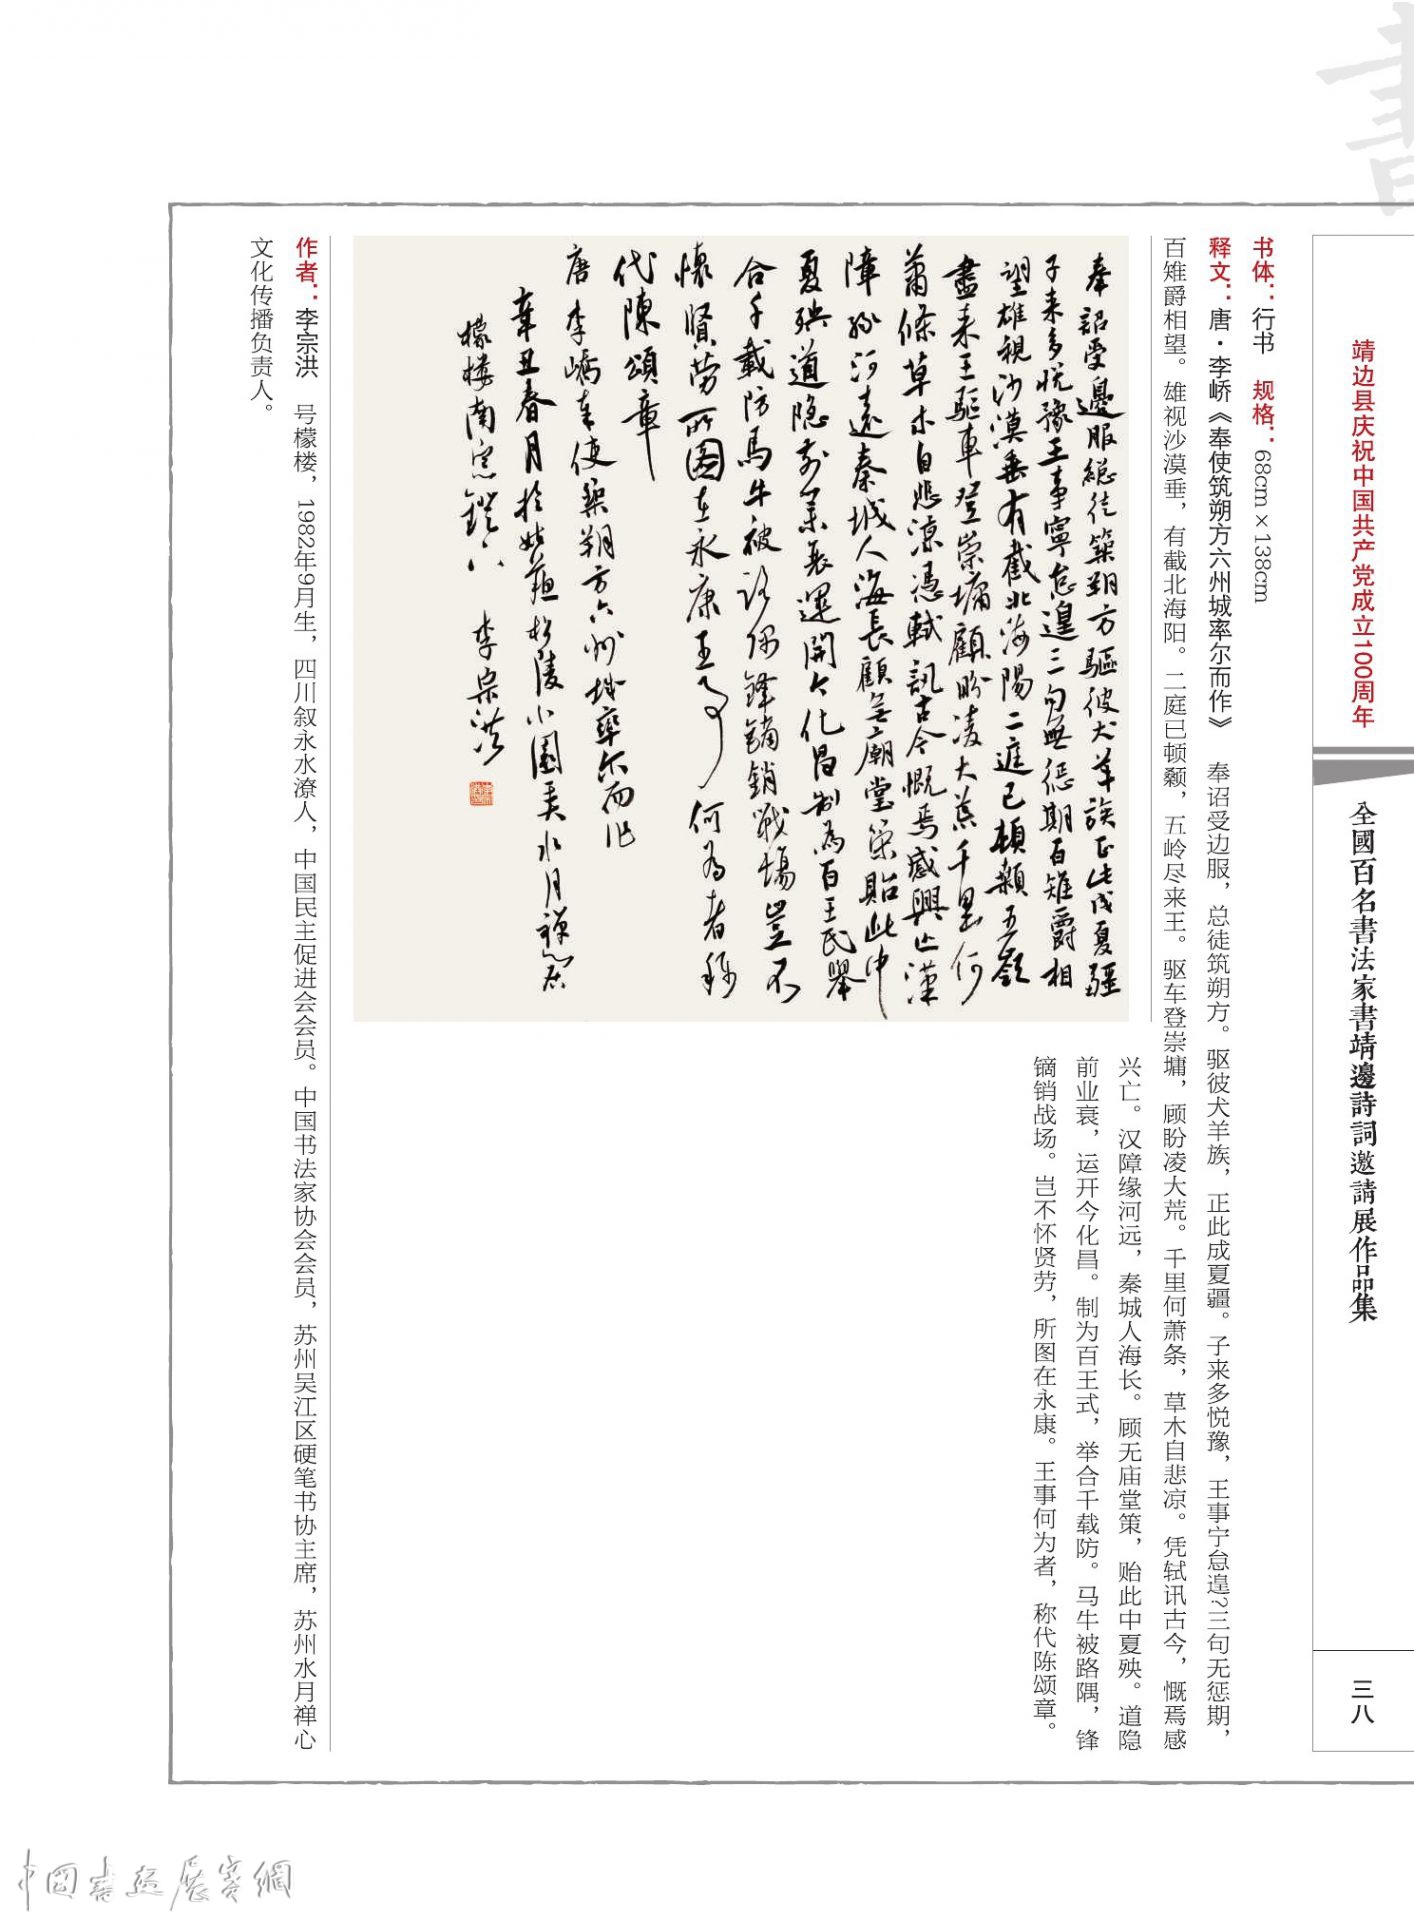 書
靖边县庆祝中国共产党成立100周年
全國百名書法家書靖邊詩詞邀請展作品集
三八
书体：行书　规格：68cm×138cm
释文：唐·李峤《奉使筑朔方六州城率尔而作》　奉诏受边服，总徒筑朔方。驱彼犬羊族，正此戍夏疆。子来多悦豫，王事宁怠遑?三旬无愆期，
百雉爵相望。雄视沙漠垂，有截北海阳。二庭已顿颡，五岭尽来王。驱车登崇墉，顾盼凌大荒。千里何萧条，草木自悲凉。凭轼讯古今，慨焉感
兴亡。汉障缘河远，秦城人海长。顾无庙堂策，贻此中夏殃。道隐
前业衰，运开今化昌。制为百王式，举合千载防。马牛被路隅，锋
镝销战场。岂不怀贤劳，所图在永康。王事何为者，称代陈颂章。
奉詔受邊服總徒築朔方驅彼犬羊族正此戍夏疆
子来多悦豫王事寧怠遑三旬無愆期百雉爵相
望雄視沙漠垂有截北海陽二庭已頓顙五嶺
盡来王驅車登崇墉顧盼凌大荒千里何
蕭條草木自悲涼憑軾訊古今慨焉感興亡漢
障緣河遠秦城人海長顧無廟堂策貽此中
夏殃道隐前業衰運開今化昌制為百王式舉
合千載防馬牛被路隅鋒鏑銷戰場豈不
懷賢勞所圖在永康王事何為者称
代陳頌章
唐李嶠奉使築朔方六州城率尔而作
辛丑春月於姑蘇松陵小園美水月禪居
檬楼南窗鐙下　李宗洪
作者：李宗洪　号檬楼，1982年9月生，四川叙永水潦人，中国民主促进会会员。中国书法家协会会员，苏州吴江区硬笔书协主席，苏州水月禅心
文化传播负责人。
中國書画展賽網